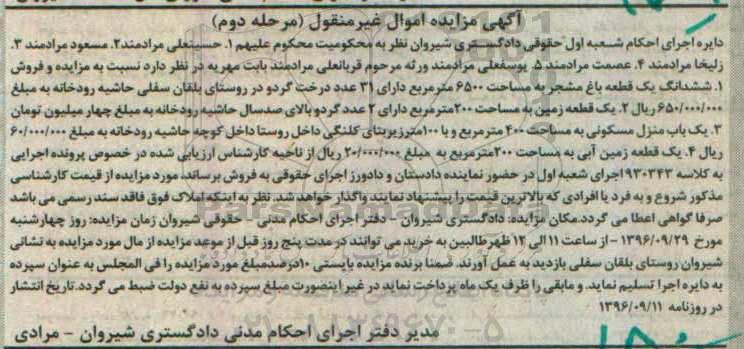 آگهی مزایده اموال غیرمنقول (مرحله دوم)
دایره اجرای احکام شعبه اول حقوقی دادگستری شیروان نظر به محکومیت محکوم علیهم ۱. حسینعلی مرادمند ۲. مسعود مرادمند ۳.
زلیخا مرادمند ۴. عصمت مرادمند ۵. یوسفعلی مرادمند ورثه مرحوم قربانعلی مرادمند بابت مهریه در نظر دارد نسبت به مزایده و فروش
۱. ششدانگ یک قطعه باغ مشجر به مساحت ۶۵۰۰ مترمربع دارای ۳۱ عدد درخت گردو در روستای بلقان سفلی حاشیه رودخانه به مبلغ
۶۵۰/۰۰۰/۰۰۰ ریال ۲. یک قطعه زمین به مساحت ۲۰۰مترمربع دارای ۲ عدد گردو بالای صدسال حاشیه رودخانه به مبلغ چهار میلیون تومان
۳. یک باب منزل مسکونی به مساحت ۴۰۰ مترمربع و با ۱۰۰مترزیربنای کلنگی داخل روستا داخل کوچه حاشیه رودخانه به مبلغ ۶۰/۰۰۰/۰۰۰
ریال ۴. یک قطعه زمین آبی به مساحت ۲۰۰مترمربع به مبلغ ۲۰/۰۰۰/۰۰۰ ریال از ناحیه کارشناس ارزیابی شده در خصوص پرونده اجرایی
به کلاسه ۹۳۰۳۴۳اجرای شعبه اول در حضور نماینده دادستان و دادورز اجرای حقوقی به فروش برساند، مورد مزایده از قیمت کارشناسی
مذکور شروع و به فرد یا افرادی که بالاترین قیمت را پیشنهاد نمایند واگذار خواهد شد. نظر به اینکه املاک فوق فاقد سند رسمی می باشد
صرفا گواهی اعطا می گردد.مکان مزایده: دادگستری شیروان - دفتر اجرای احکام مدنی - حقوقی شیروان زمان مزایده: روز چهارشنبه
مورخ ۱۳۹۶/۰۹/۲۹ - از ساعت ۱۱ الی ۱۲ ظهرطالبین به خرید می توانند در مدت پنج روز قبل از موعد مزایده از مال مورد مزایده به نشانی
شیروان روستای بلقان سفلی بازدید به عمل آورند. ضمنا برنده مزایده بایستی ۱۰درصدمبلغ مورد مزایده را فی المجلس به عنوان سپرده
به دایره اجرا تسلیم نماید. و مابقی را ظرف یک ماه پرداخت نماید در غیر اینصورت مبلغ سپرده به نفع دولت ضبط می گردد.تاریخ انتشار
در روزنامه ۱۳۹۶/۰۹/۱۱
مدیر دفتر اجرای احکام مدنی دادگستری شیروان - مرادی